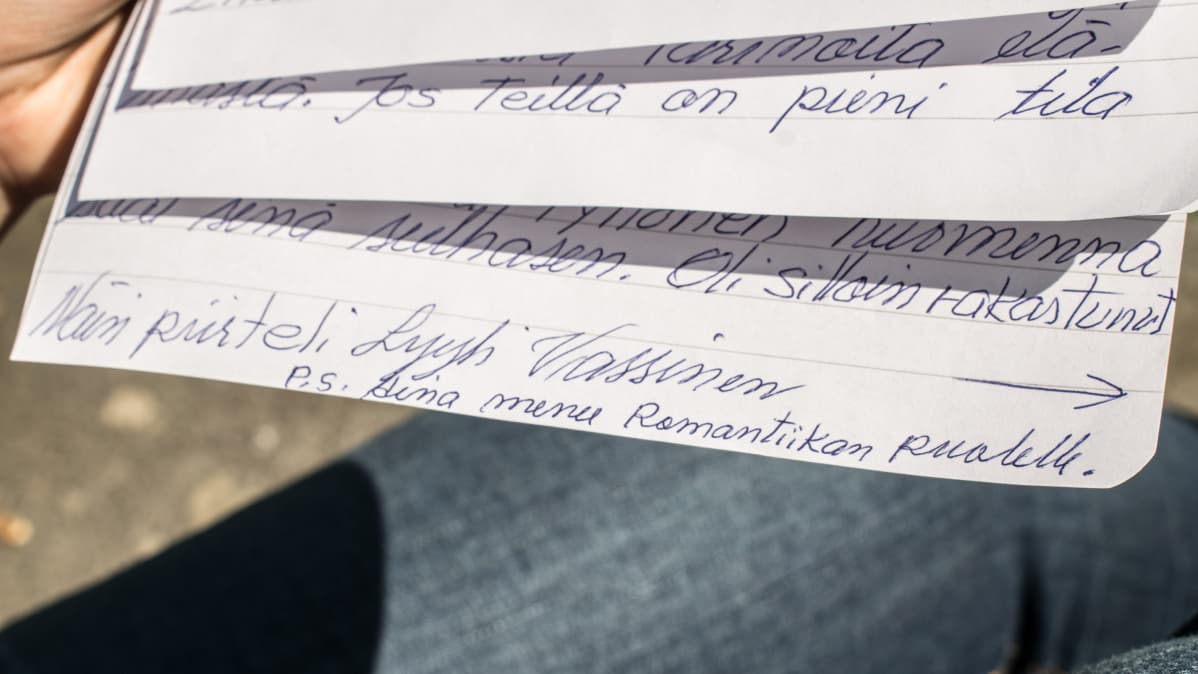 tarinoita elä-
mästä. Jos Teillä on pieni tila
huomenna
saat sinä sulhasen. Oli silloin rakastunut
Näin piirteli Vassinen →
P.S. Aina menee Romantiikan puolelle.